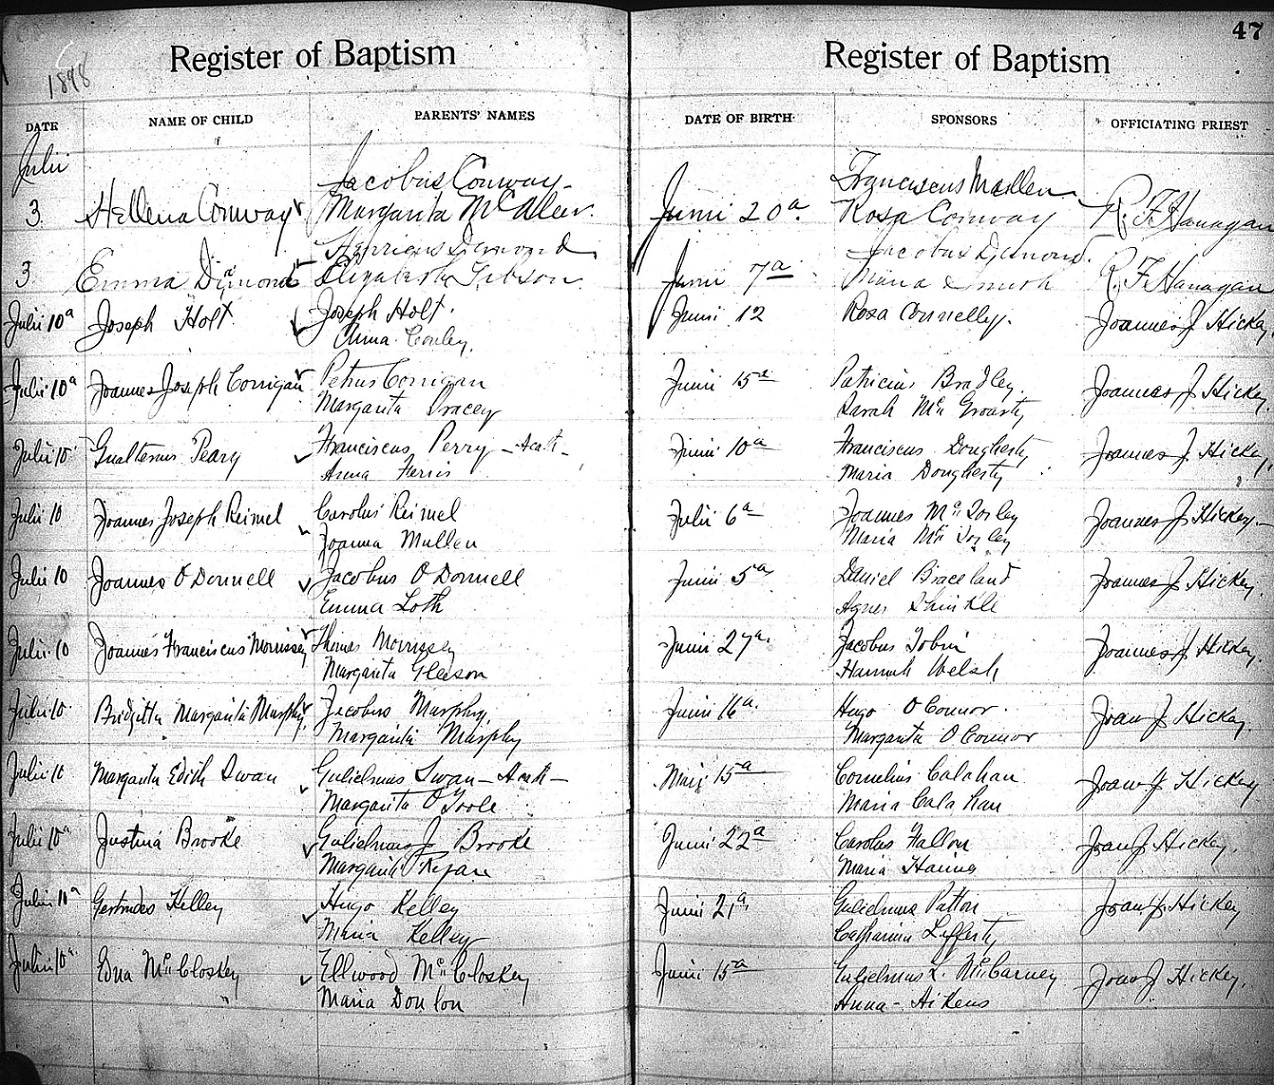 47
Register of Baptism Register of Baptism
1898
DATE NAME OF CHILD PARENTS' NAMES DATE OF BIRTH SPONSORS OFFICIATING PRIEST
Julii
Jacobus Conway Franciscus Mullen
3. Hellena Conway Margarita McAleer. Junii 20a. Rosa Conway R. F. Hanagan
Henricus Dimond Jacobus Dimond.
3. Emma Dimond Elizabeth Gibson Junii 7a Maria Smith R. F. Hanagan
Julii 10a Joseph Holt Joseph Holt. Junii 12 Rosa Connelly. Joannes J. Hickey.
Anna Conley.
Julii 10a Joannes Joseph Corrigan Petrus Corrigan Junii 15a Patricius Bradley. Joannes J. Hickey.
Margarita Dracey Sarah McGroarty
Julii 10 Gualterus Peary Franciscus Perry - Acath - Junii 10a Franciscus Dougherty Joannes J. Hickey.
Anna Ferris Maria Dougherty
Julii 10 Joannes Joseph Reimel Carolus Reimel Julii 6a Joannes McSorley Joannes J. Hickey.
Joanna Mullen Maria McSorley
Julii 10 Joannes O'Donnell Jacobus O'Donnell Junii 5a Daniel Braceland Joannes J. Hickey.
Emma Loth Agnes Shinkle
Julii 10 Joannes Franciscus Morrissey Thomas Morrissey Junii 27a. Jacobus Tobin Joannes J. Hickey.
Margarita Gleason Hannah Welsh
Julii 10 Bridgitta Margarita Murphy Jacobus Murphy. Junii 16a. Hugo O'Connor. Joan J. Hickey.
Margarita Murphy Margarita O'Connor
Julii 10 Margarita Edith Swan Gulielmus Swan - Acath - Maii 15a Cornelius Calahan Joan J. Hickey.
Margarita O'Toole Maria Calahan
Julii 10a Justina Brooke Gulielmus J. Brooke Junii 22a Carolus Fallon Joan J. Hickey.
Margarita Maria Hanna
Julii 10a Gertrudes Kelley Hugo Kelley Junii 21a Gulielmus Patton Joan J. Hickey
Maria Kelley Catharina Lefferty
Julii 10a. Edna McCloskey Ellwood McCloskey Junii 15a Gulielmus L. McCarney Joan J. Hickey.
Maria Donlon Anna Aikens